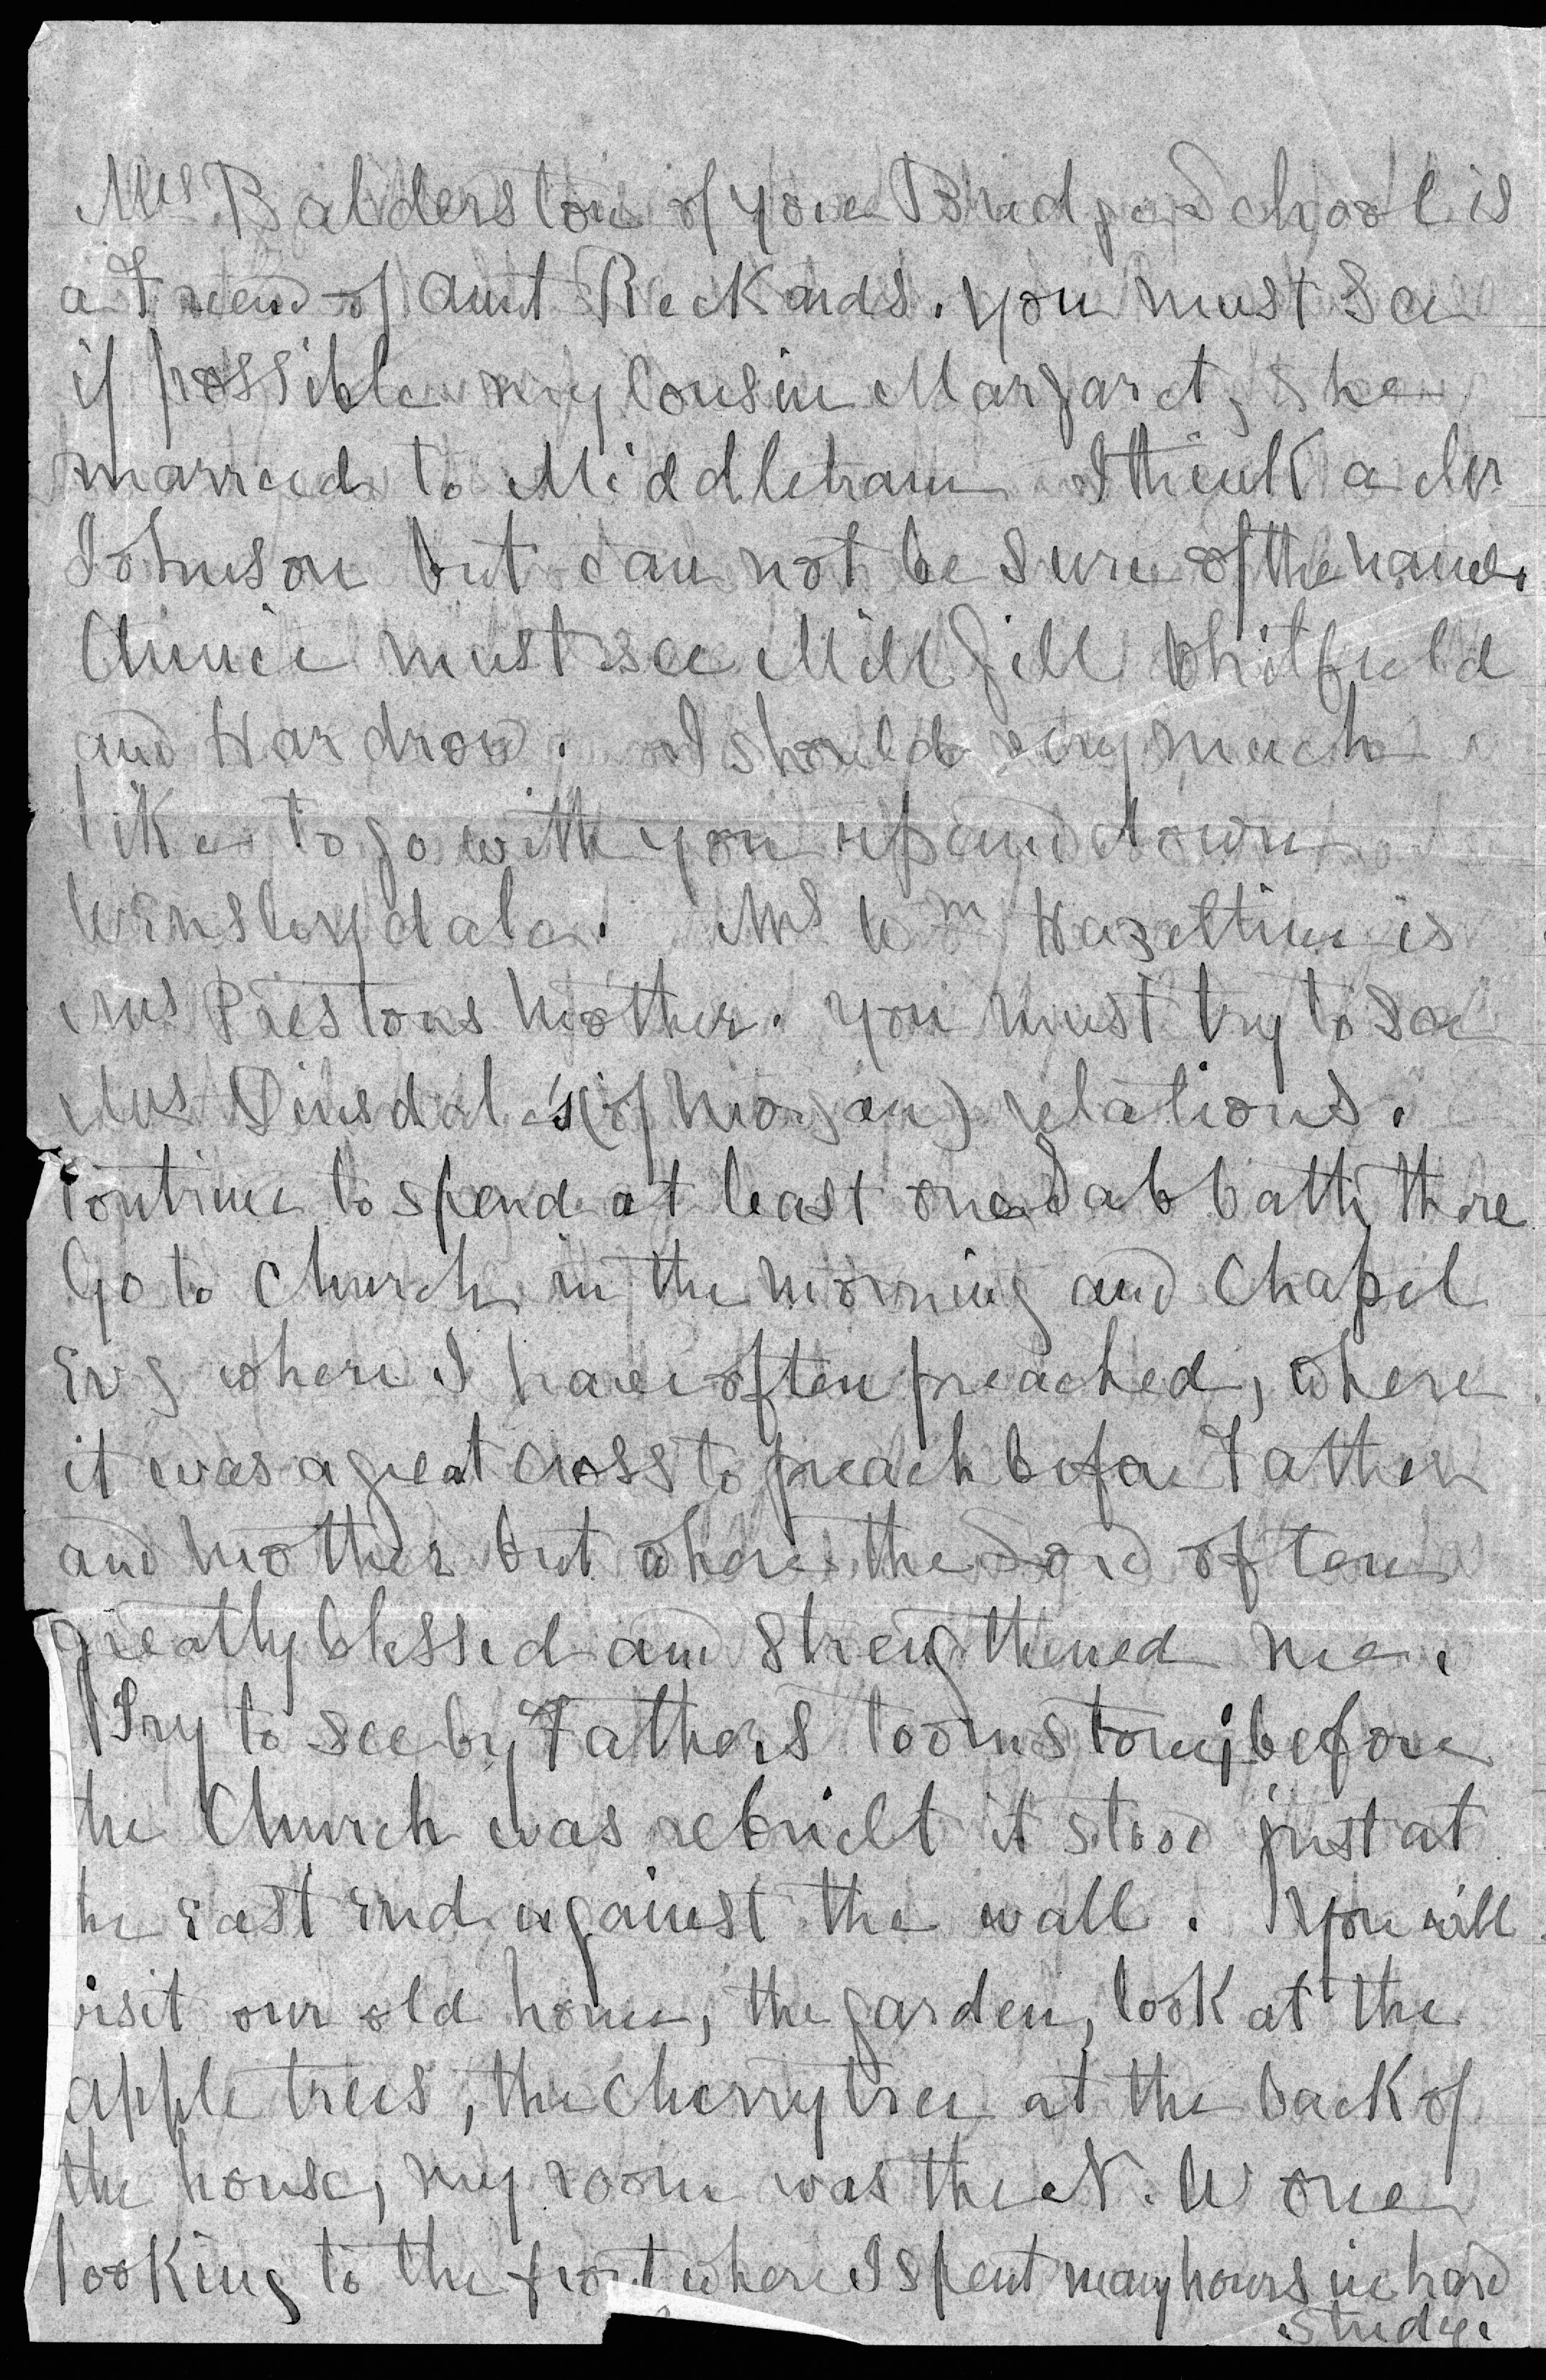 Mrs Balderston of Yore Bridge School is
a Friend of Aunt Reckards. You must see
if possible my Cousin Margaret, she
married to Middleham I think a Mr
Johnson but can not be sure of the name.
Annie must see Mill Gill Whitfield
and Hardrow. I should very much
like to go with you up and down
Wensleydale. Mrs Wm Hazeltine is
Mrs Prestons Mother. You must try to see
Mrs Dinsdale's (of Morgan) relations.
Contrive to spend at least one Sabbath there
Go to Church in the Morning and Chapel
Evg where I have often preached, where
it was a great cross to preach before Father
and Mother but where the Lord often
greatly blessed and strengthened me.
Try to see by Fathers toomstone; before
the Church was rebuilt it stood just at
he East End against the wall. You will
visit our old home, the garden, look at the
apple trees, the cherry tree at the back of
the house, my room was the N. W one
looking to the front where I spent many hours in hard
study.